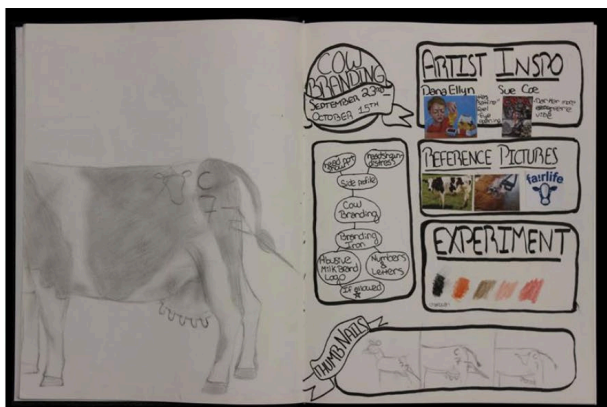 C
7
COW
BRANDING
SEPTEMBER 23RD
OCTOBER 15TH
ARTIST INSPO
Dana Ellyn
Sue Coe
REFERENCE PICTURES
fa!rlife
Side profile
Cow
Branding
Branding
Iron
Abusive
Milk Brand
Logo
Numbers
&
Letters
If allowed
EXPERIMENT
THUMBNAILS